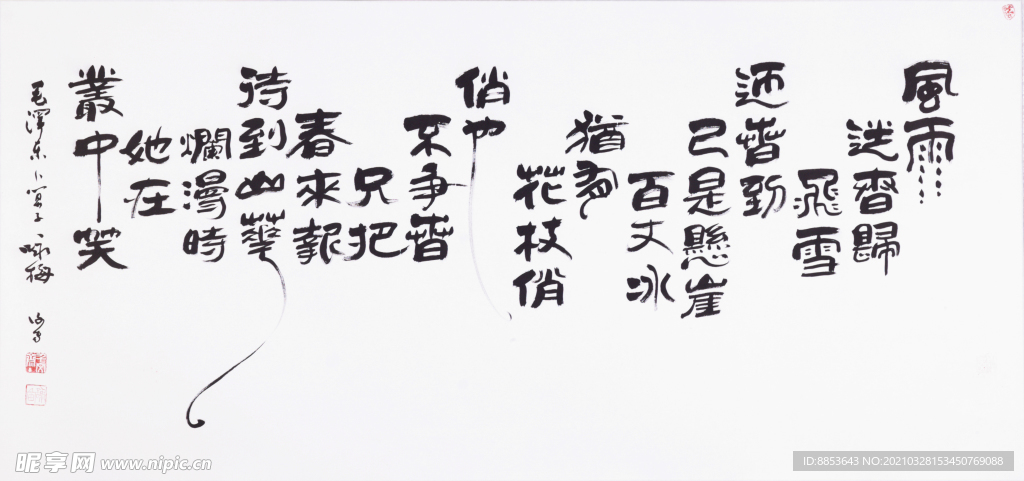 風雨
送春歸
飛雪
迎春到
已是懸崖
百丈冰
猶有
花枝俏
俏也
不爭春
只把
春來報
待到山華
爛漫時
她在
叢中笑
毛澤东卜算子咏梅
昵享网 www.nipic.cn
ID:8853643 NO:20210328153450769088